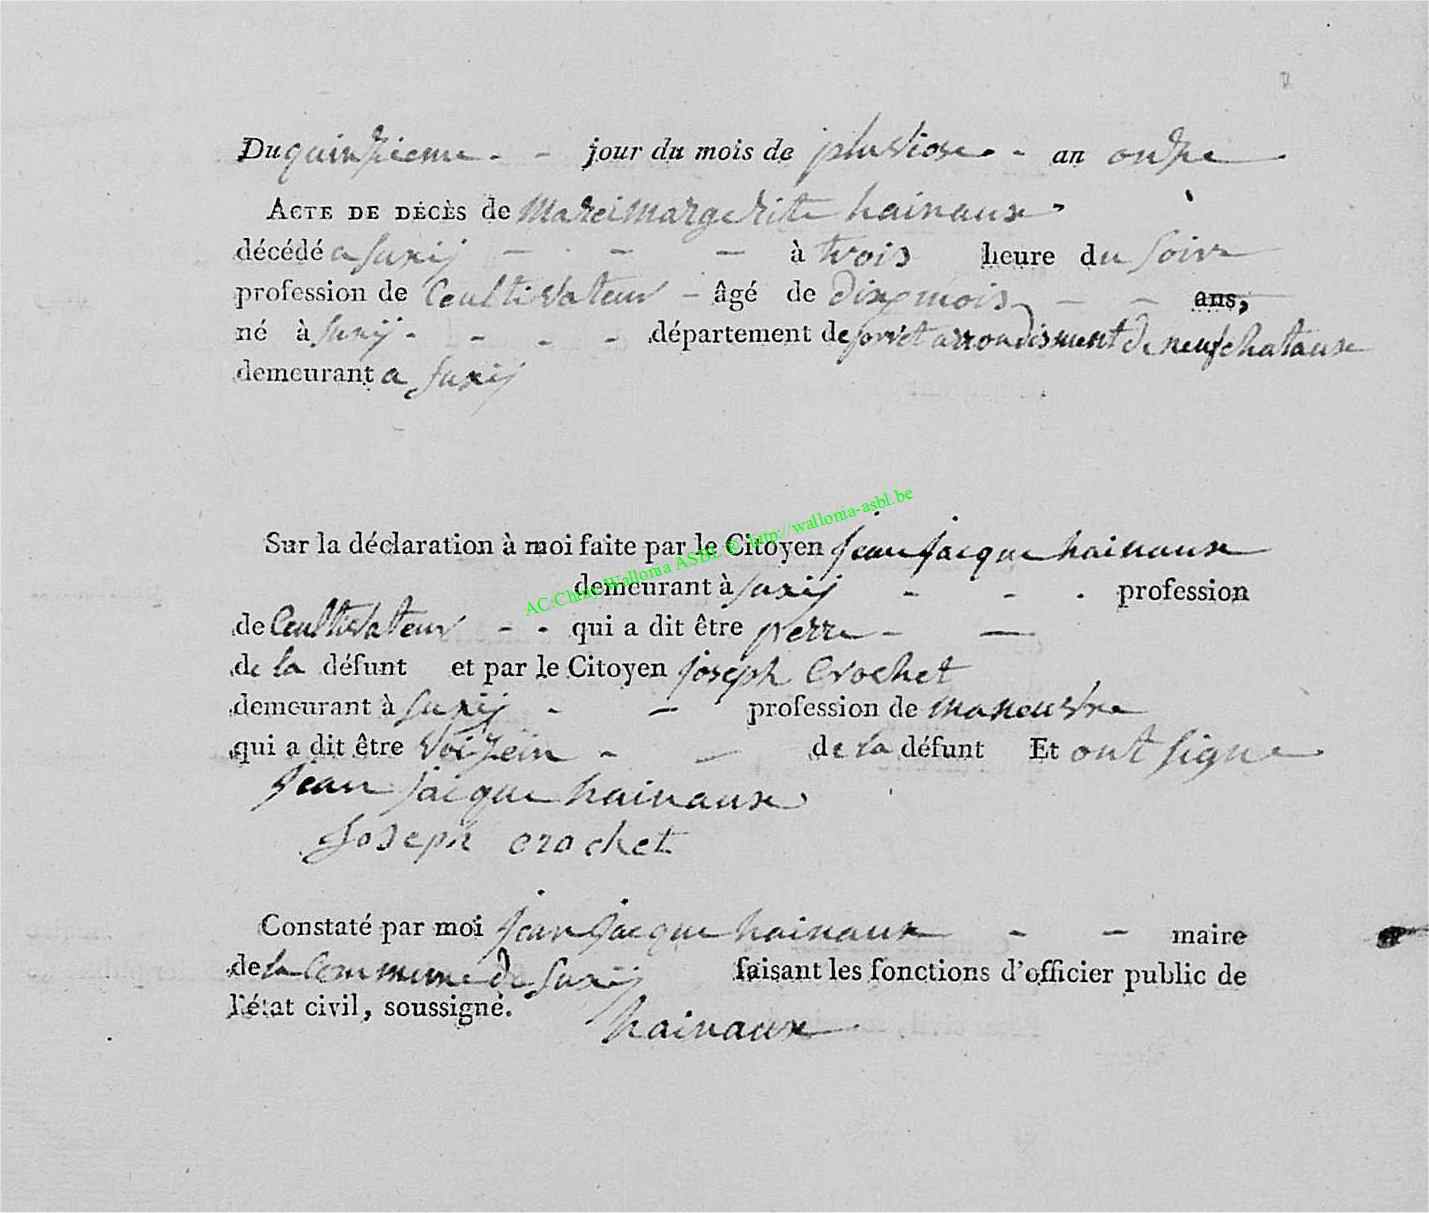 Du quinzieme - - jour du mois de pluviose - an onze
ACTE DE DÉCÈS de Marei margerite hainaux
décédé a Suxij - - - à trois heure du soire
profession de Ceultivateur - âgé de dix mois - - ans,
né à Suxij - - - - département de forret arrondisment de neufchataux
demeurant a Suxij
AC-Chiny Wallonia ASBL © http://wallonia-asbl.be
Sur la déclaration à moi faite par le Citoyen jean jacque hainaux
demeurant à Suxij - - - profession
de Ceultivateur - - qui a dit être perre - -
de la défunt et par le Citoyen joseph Crochet
demeurant à Suxij - - profession de maneuvre
qui a dit être voizein - - de la défunt Et ont signe
jean jacque hainaux
Joseph crochet
Constaté par moi jean jacque hainaux - - maire
de la Commune de Suxij faisant les fonctions d'officier public de
l'état civil, soussigné.
hainaux